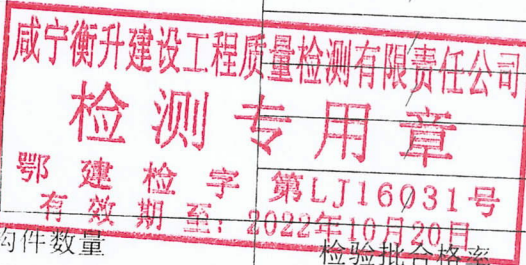 咸宁衡升建设工程质量检测有限责任公司
检测专用章
鄂建检字第LJ16031号
有效期至:2022年10月20日
构件数量 检验批合格率